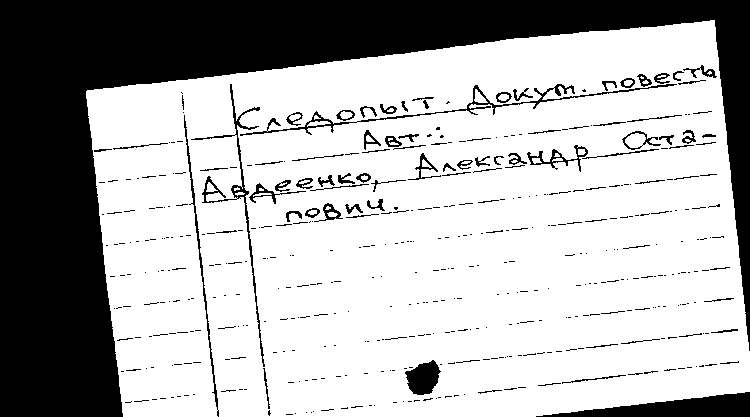 Следопыт. Докум. повесть
Авт.:
Авдеенко, Александр Оста-
пович.